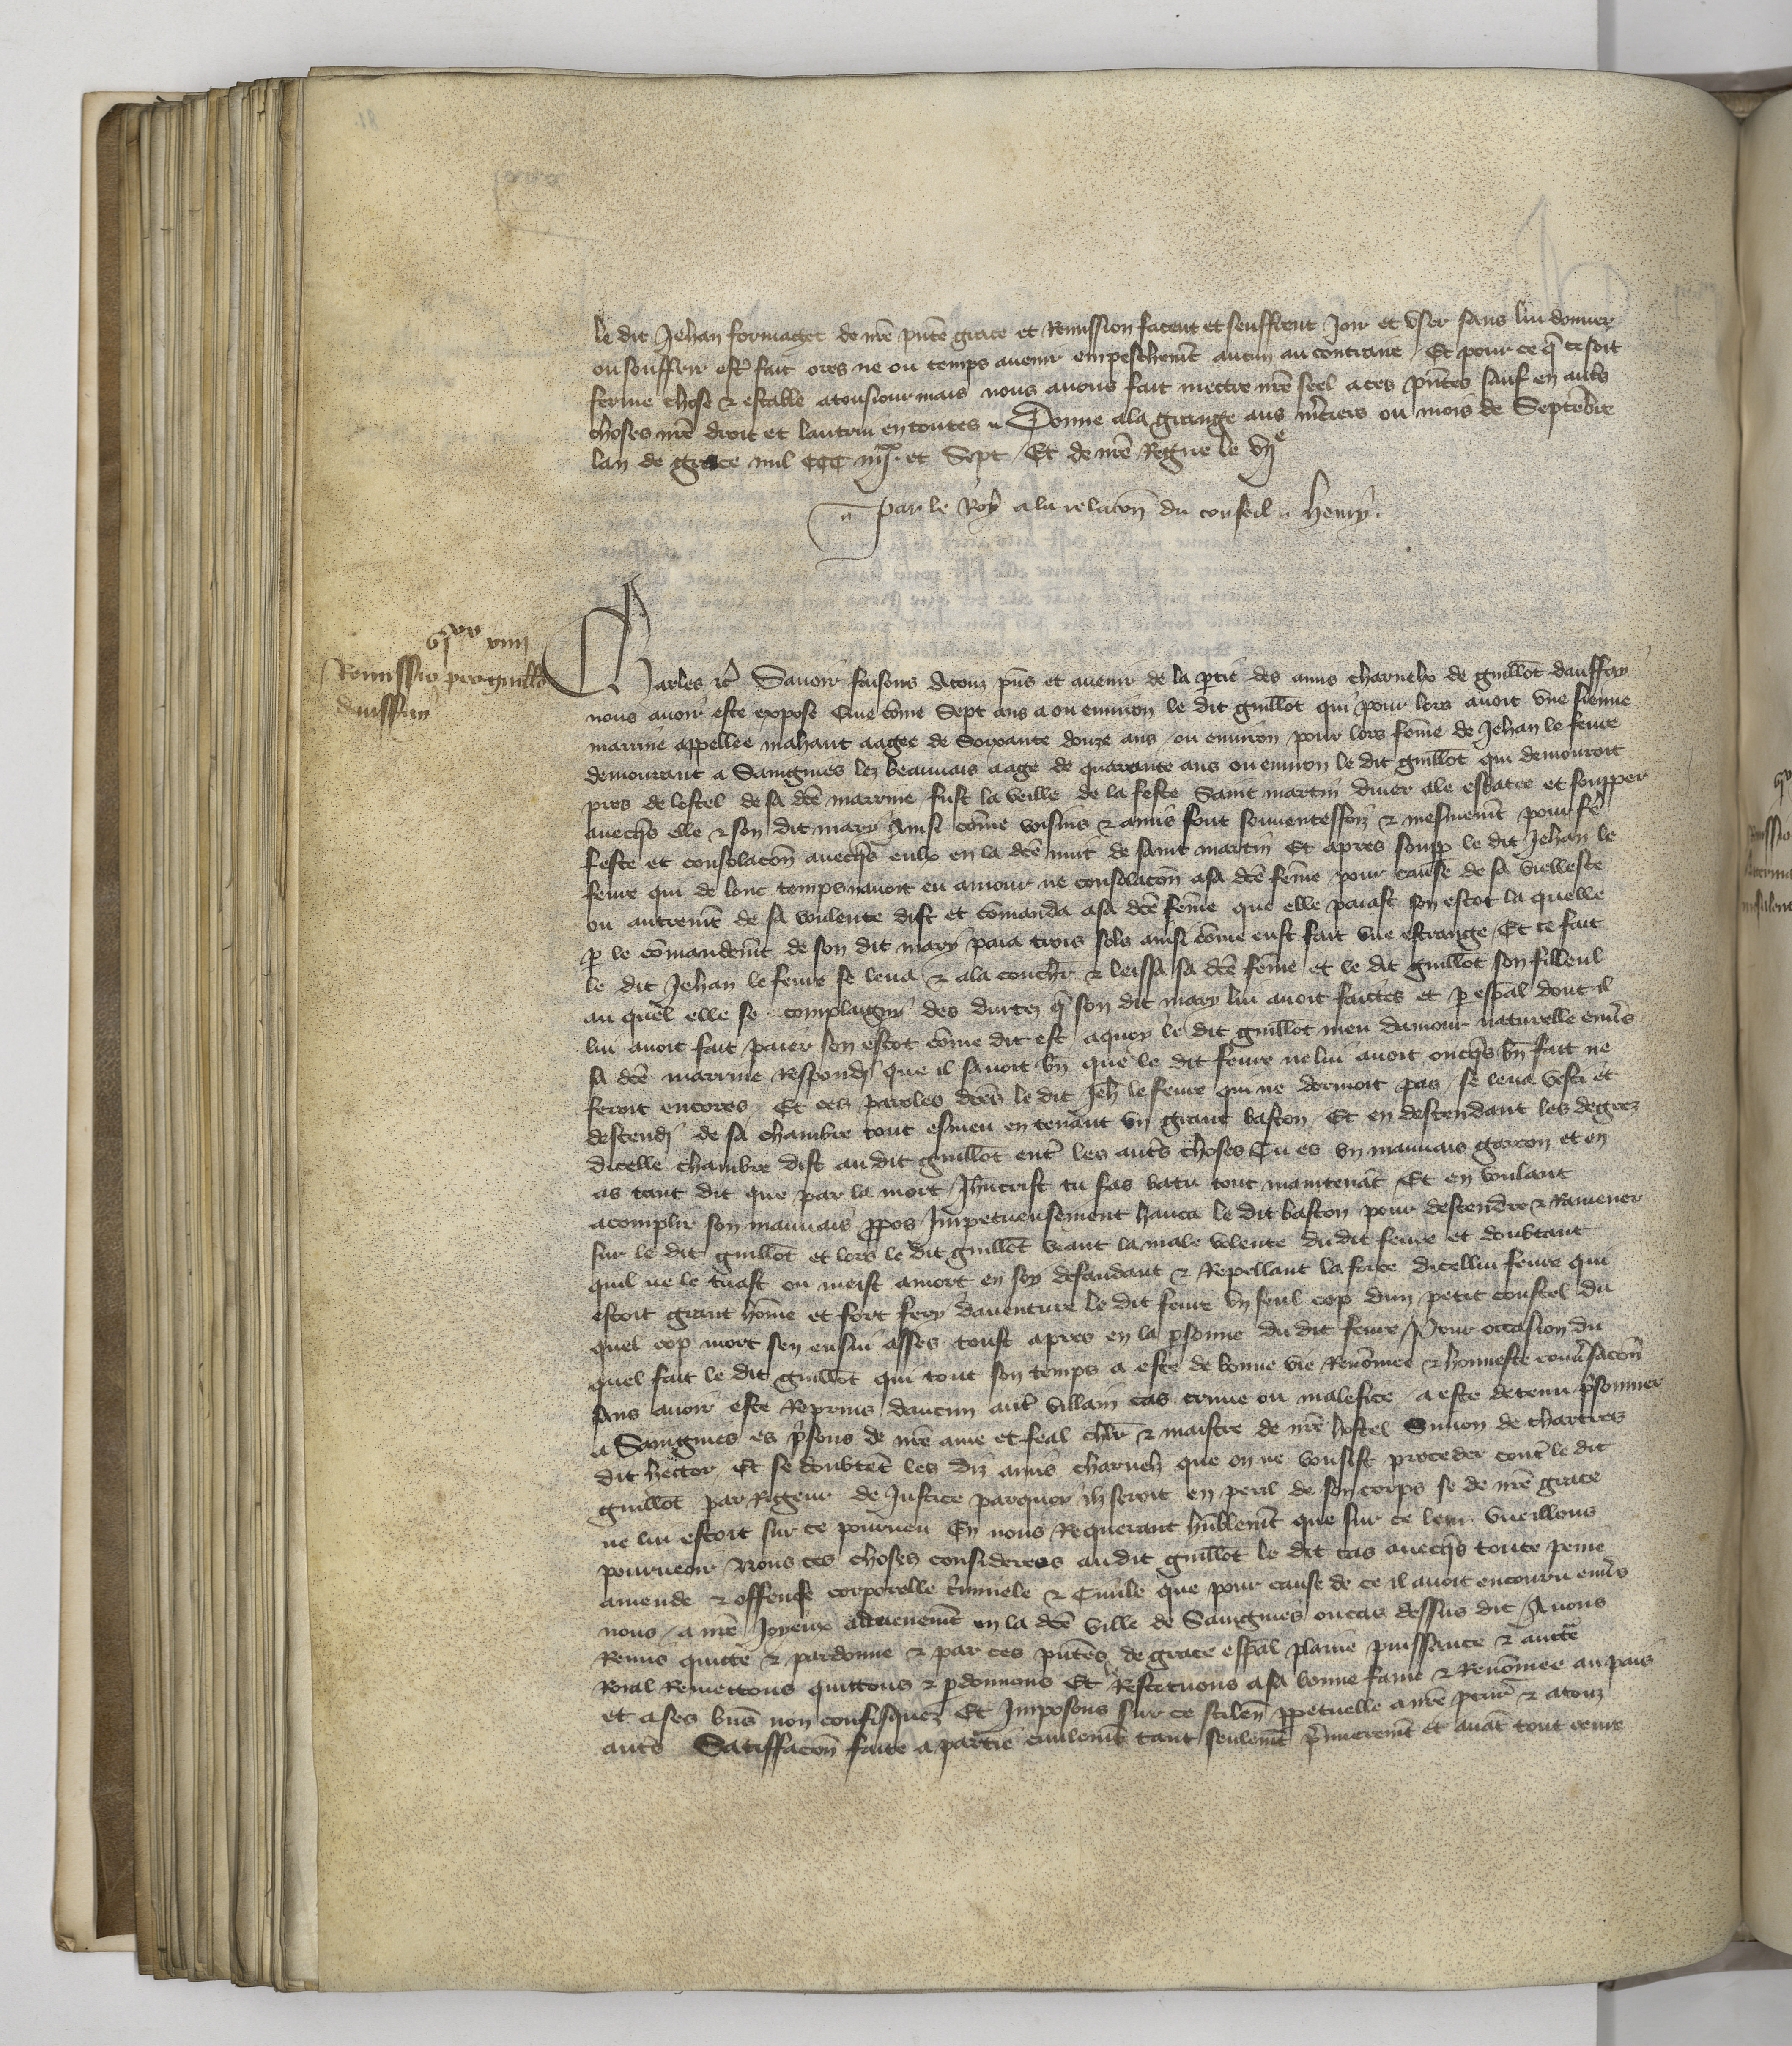 le dit Jehan formaget de nr̃e pñte grace et Remission facent et seuffrent Joir et vser sans lui donner
ou souffrir estr̃ fait ores ne ou temps auenir empeschem̃t aucun au contraire Et pour ce q̃ ce soit
ferme chose & estable atousiourmais nous auons fait mectre nr̃e seel a ces pñtes sauf en autr̃s
choses nr̃e droit et lautrui en toutes Donne ala grange aus m̃ciers ou mois de Septembre
lan de grace mil CCC iiijxx et Sept Et de nr̃e Regne le vije
par le Roy a la relacõn du conseil Henry
vjxx viij
Remissio pro guillõ
dauffay
Charles &c̃ Sauoir faisons Atouz pñs et auenir de la p̱tie des amis charnelx de guillot dauffay
nous auoir este expose Que cõme Sept ans a ou enuiron le dit guillot qui pour lors auoit vne sienne
marrine appellee mahaut aagee de Soixante douze ans ou enuiron pour lors fẽme de Jehan le feure
demourant a Saingnies lez beauuais aage de quarante ans ou enuiron le dit guillot qui demouroit
pres de lostel de sa dc̃e marrine fust la veille de la feste Saint martin diuer ale esbatre et soupper
auecq̃s elle & son dit mary Ainsi cõme voisins & amis font souuenteffoiz & mesmem̃t pour fẽ
feste et consolacõn auecq̃s eulx en la dc̃e nuit de saint martin Et apres soup̱ le dit Jehan le
feure qui de lonc temps nauoit eu amour ne consolacõn asa dc̃e fẽme pour cause de sa viellesce
ou autrem̃t de sa voulente dist et cõmanda asa dc̃e fẽme que elle paiast son escot la quelle
p̱ le cõmandem̃t de son dit mary paia trois solz ainsi cõme eust fait vne estrange Et ce fait
le dit Jehan le feure se leua & ala couchr̃ & leissa sa dc̃e fẽme et le dit guillot son filleul
au quel elle se complaigny des durtez q̃ son dit mary lui auoit faictes et p̱ esp̃al dont il
lui auoit fait paier son escot cõme dit est aquoy le dit guillot meu damour naturelle enuẽs
sa dc̃e marrine Respondi que il sauoit bñ que le dit feure ne lui auoit oncq̃s bñ fait ne
feroit encores Et ces paroles dc̃es le dit Jeh̃ le feure qui ne dormoit pas se leua vesti et
descendi de sa chambre tout esmeu en tenant vn grant baston Et en descendant les degrez
dicelle chambre dist au dit guillot entr̃ les autr̃s choses Tu es vn mauuais garcon et en
as tant dit que par la mort Jh̃ucrist tu sas batu tout maintenãt Et en voulant
acomplir son mauuais p̱pos Impetueusement hauca le dit baston pour descendre & Ramener
sur le dit guillot et lors le dit guillot veant la male volente du dit feure et doubtant
quil ne le tuast ou meist amort en soy defandant & Repellant la force dicellui feure qui
estoit grant hõme et fort fery dauenture le dit feure vn seul cop dun petit coustel du
quel cop mort sen ensui asses toust apres en la p̱sonne du dit feure Pour occasion du
quel fait le dit guillot qui tout son temps a este de bonne vie Renõmee & honneste conũsacõn
sans auoir este Reprins daucun autr̃ villain cas crime ou malefice a este detenu p̃sonnier
a Saingnies es p̃sons de nr̃e ame et feal chlr̃ & maistre de nr̃e hostel Simon de chartres
dit hector Et se doubtẽt les diz amis charnelz que on ne vousist proceder contr̃ le dit
guillot par Rigeur de Justice parquoy ilz seroit en peril de son corps se de nr̃e grace
ne lui estoit sur ce pourueu En nous Requerant hũblem̃t que sur ce leur vueillons
pourueoir Nous ces choses considerees au dit guillot le dit cas auecq̃s toute peine
amende & offense corporelle c̃minele & Ciuile que pour cause de ce il auoit encouru enuẽs
nous a nr̃e Joyeux aduenem̃t en la dc̃e ville de Saingnies ou cas dessus dit Auons
Remis quitte & pardonne & par ces pñtes de grace esp̃al plaine puissance & auctr̃e
Roial Remettons quittons & p̱donnons Et Restituons asa bonne fame & Renõmee au pais
et a ses biẽs non confisquez Et Imposons sur ce scilẽn p̱petuelle a nr̃e pc̃ur̃ & atouz
autr̃s Satiffacõn faite a partie ciuilem̃t tant seulem̃t p̃mierem̃t et auãt tout euure